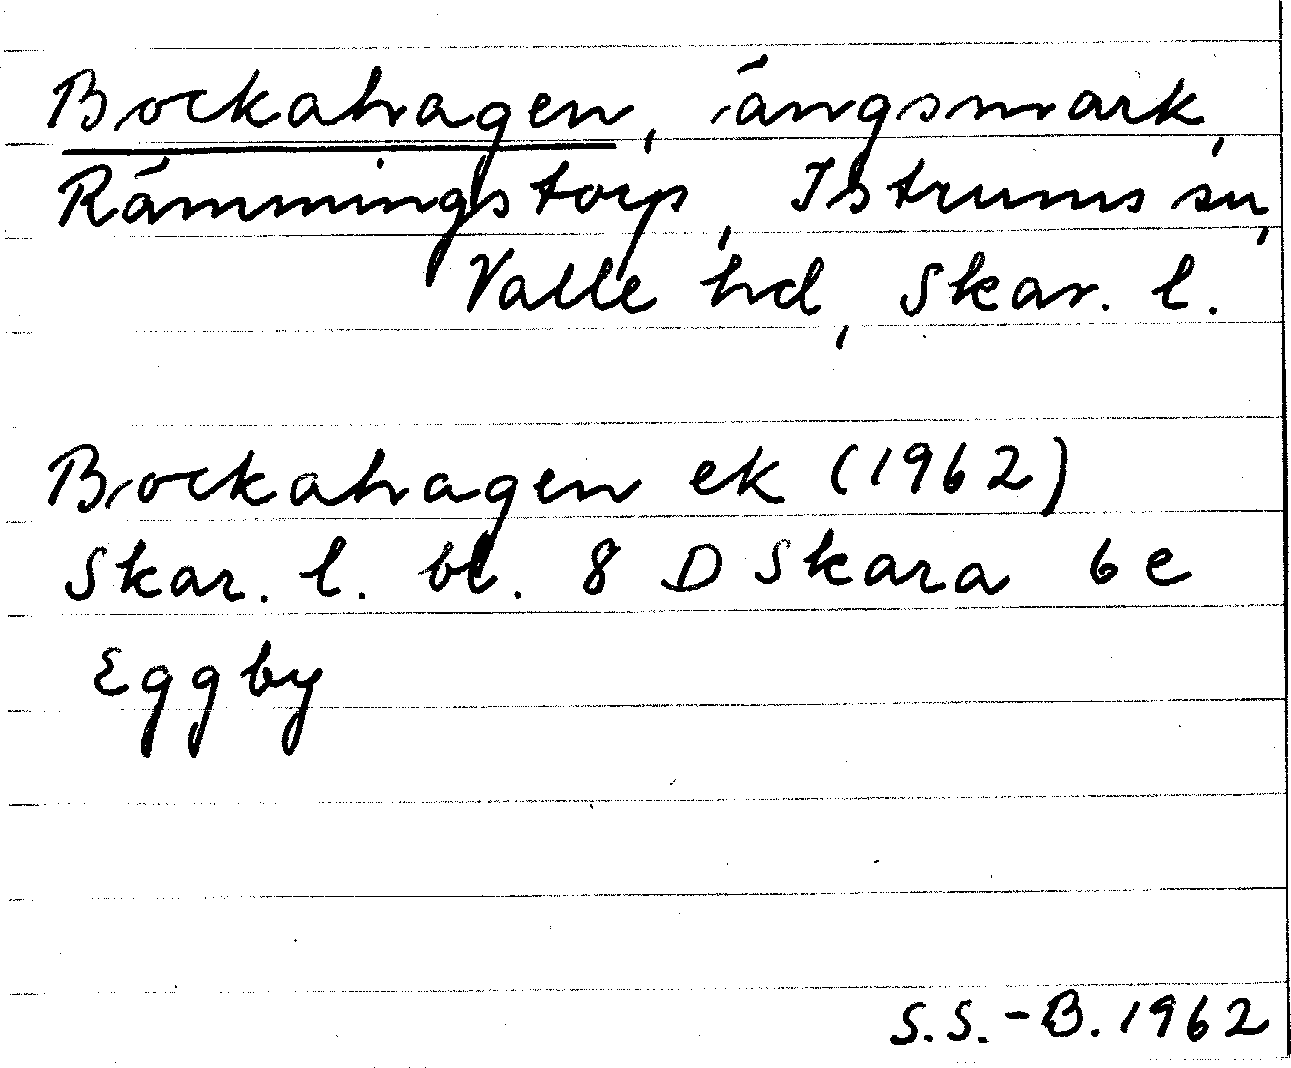 Bockahagen, ängsmark,
Rämmingstorp, Istrums sn,
Valle hd, Skar. l.
Bockahagen ek (1962)
Skar. l. bl. 8 D Skara 6e
Eggby
S.S.-B. 1962